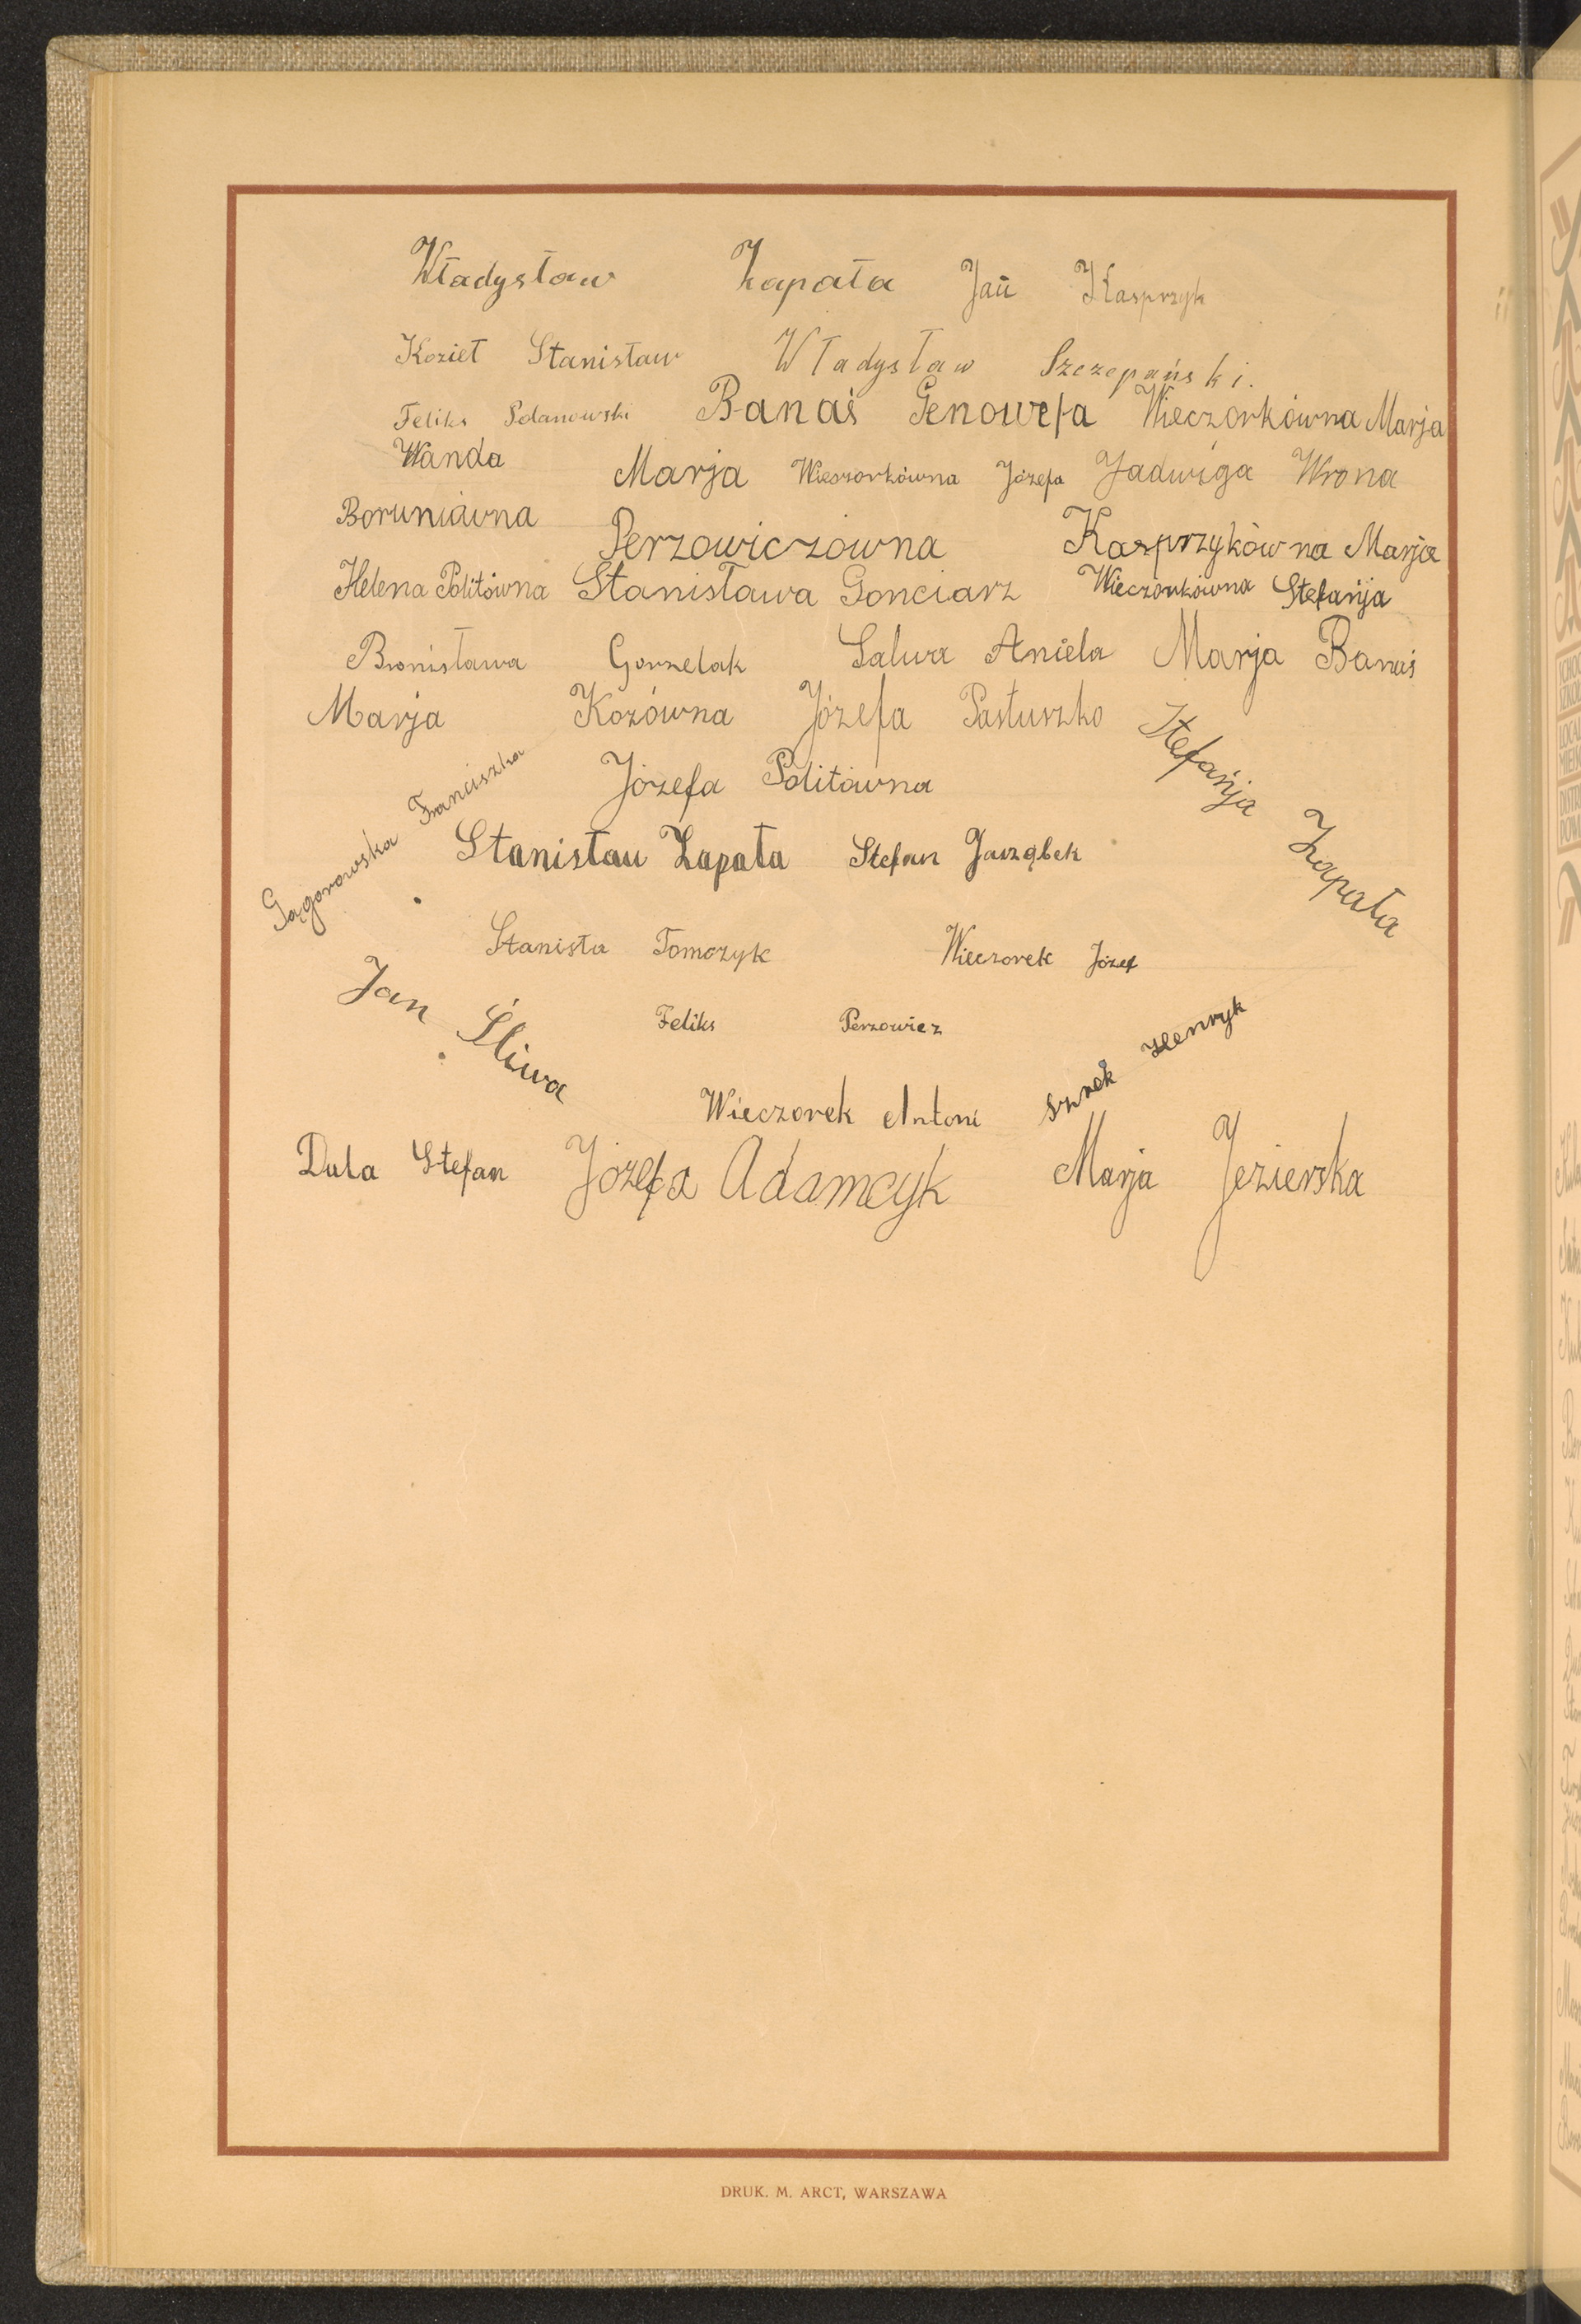 Władysław Zapała Jań Kasprzyk
Kozieł Stanisław Władysław Szczepański.
Feliks Banaś Genowefa Wieczorkówna Marja
Wanda Marja Wieczorkówna Józefa Jadwiga Wrona
Boruniówna Perzowiczówna Kasprzykówna Marja
Helena Politówna Stanisława Gonciarz Wieczorkówna Stefańja
Bronisława Gorzelak Salwa Aniela Marja Banaś
Marja Kozówna Józefa Pastuszko
Stefańja Zapała
Gągorowska Franciszka
Józefa Politówna
Stanisław Zapała Stefan Jarząbek
Stanisła Tomczyk Wieczorek Józef
Jan Śliwa
Feliks Perzowicz
Henryk
Wieczorek Antoni
Duła Stefan Józefa Adamcyk Marja Jezierska
DRUK. M. ARCT, WARSZAWA